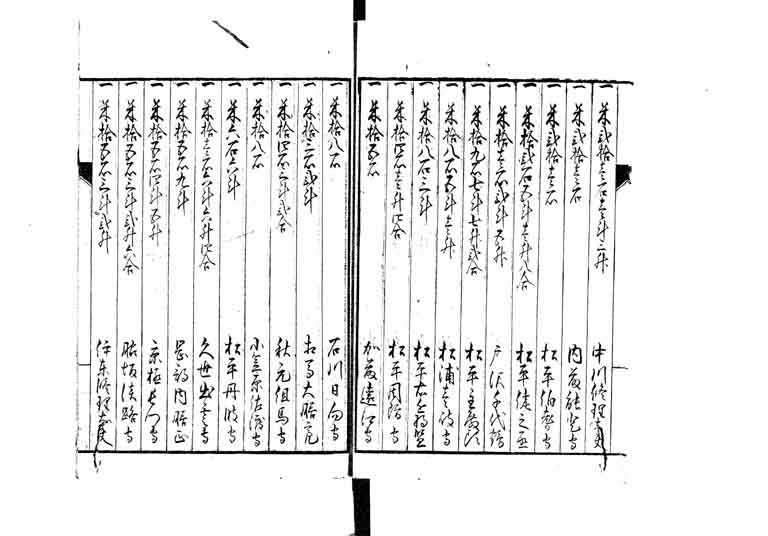 一 米弐拾壱石壱斗三升 中川修理大夫
一 米弐拾壱石 内藤能登守
一 米弐拾壱石 松平伯耆守
一 米拾弐石五斗壱升八合 松平徒之丞
一 米拾壱石弐斗五升 戸沢千代鶴
一 米拾九石七斗七升弐合 松平主殿頭
一 米拾八石五斗壱升 松浦壱岐守
一 米拾八石三斗 松平右近将監
一 米拾四石壱升四合 松平周防守
一 米拾五石 加藤遠江守
一 米拾八石 石川日向守
一 米拾三石弐斗 相馬大膳亮
一 米拾四石三斗弐合 秋元但馬守
一 米拾八石 小笠原佐渡守
一 米六石六斗 松平丹波守
一 米拾壱石六斗六升四合 久世出雲守
一 米拾五石九斗 岡部内膳正
一 米拾五石四斗五升 京極長門守
一 米拾五石三斗弐升六合 脇坂淡路守
一 米拾五石三斗弐升 伊東修理大夫